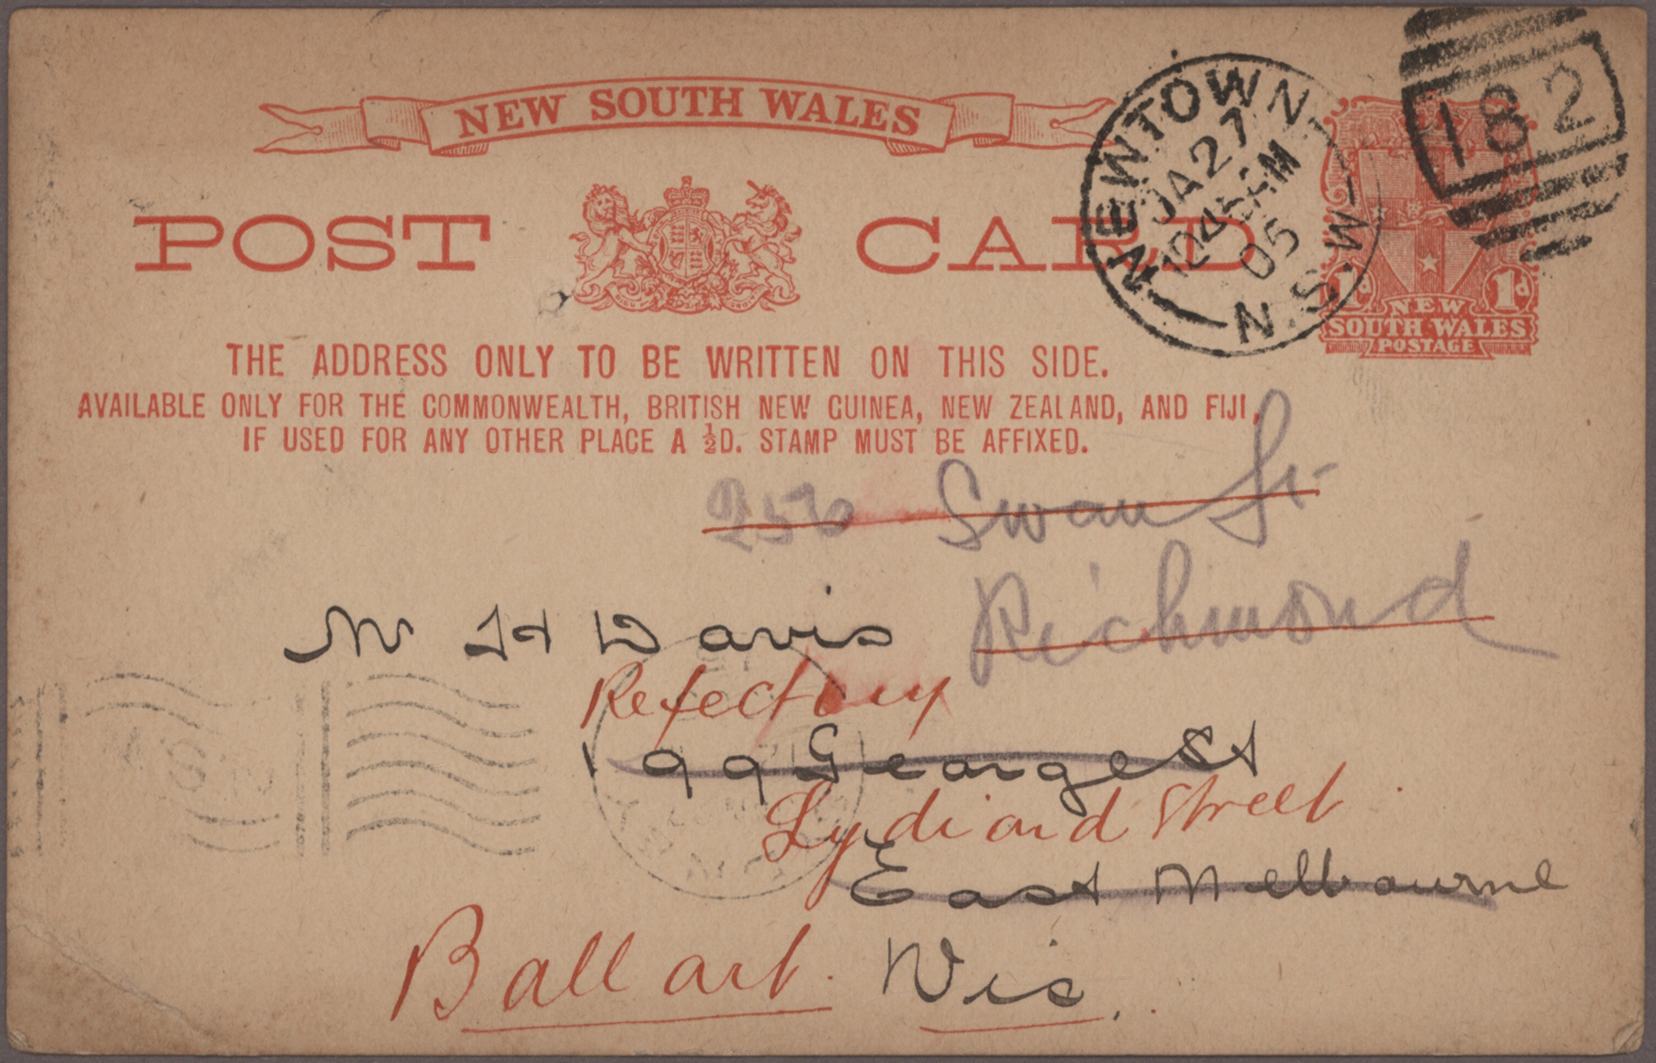 NEW SOUTH WALES
POST CARD
NEWTOWN
JA 27
1245 PM
05
N.S.W
182
1d
NEW
SOUTH WALES
POSTAGE
THE ADDRESS ONLY TO BE WRITTEN ON THIS SIDE.
AVAILABLE ONLY FOR THE COMMONWEALTH, BRITISH NEW GUINEA, NEW ZEALAND, AND FIJI,
IF USED FOR ANY OTHER PLACE A ½D. STAMP MUST BE AFFIXED.
Swan St
Richmond
Mr H Davis
Refectory
199 George St
Lydiard Street
East Melbourne
Ballarat. Vic.